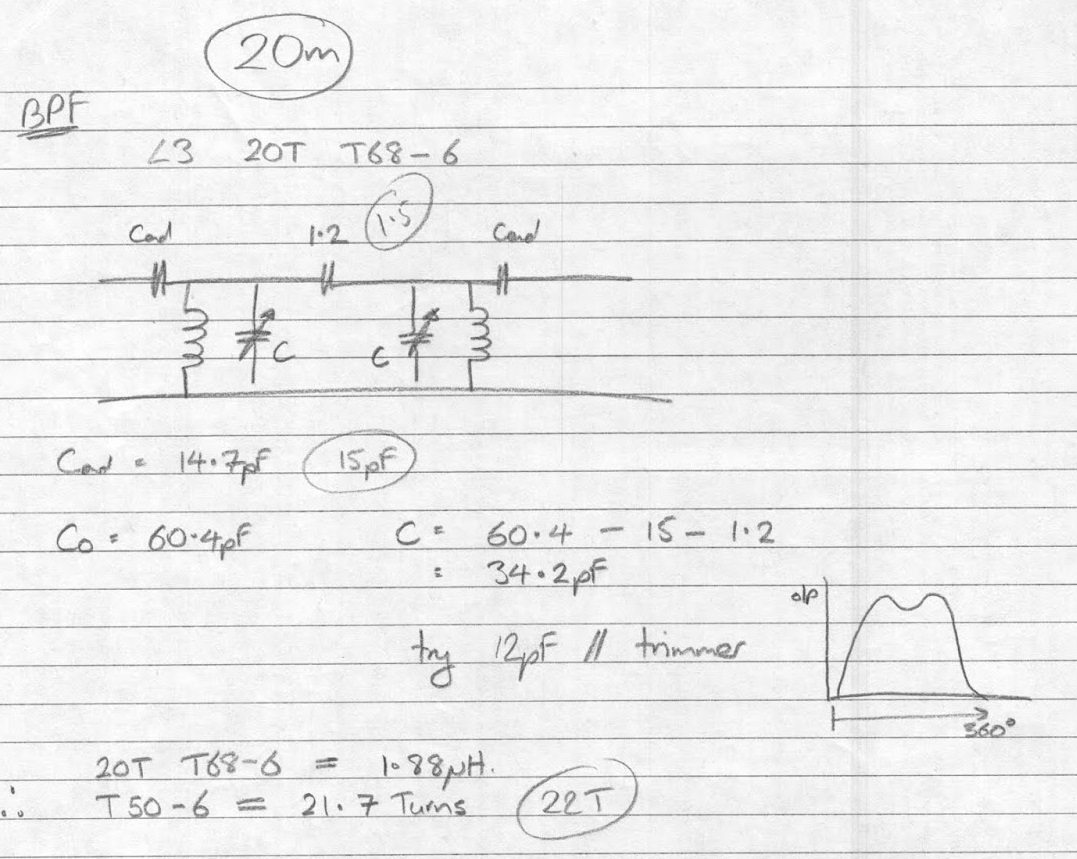 20m
BPF
L3 20T T68-6
Cend 1.2 1.5 Cend
C C
Cend = 14.7pF 15pF
Co = 60.4pF C = 60.4 - 15 - 1.2
= 34.2pF
o/p
try 12pF // trimmer
360°
20T T68-6 = 1.88μH.
∴ T50-6 = 21.7 Turns 22T